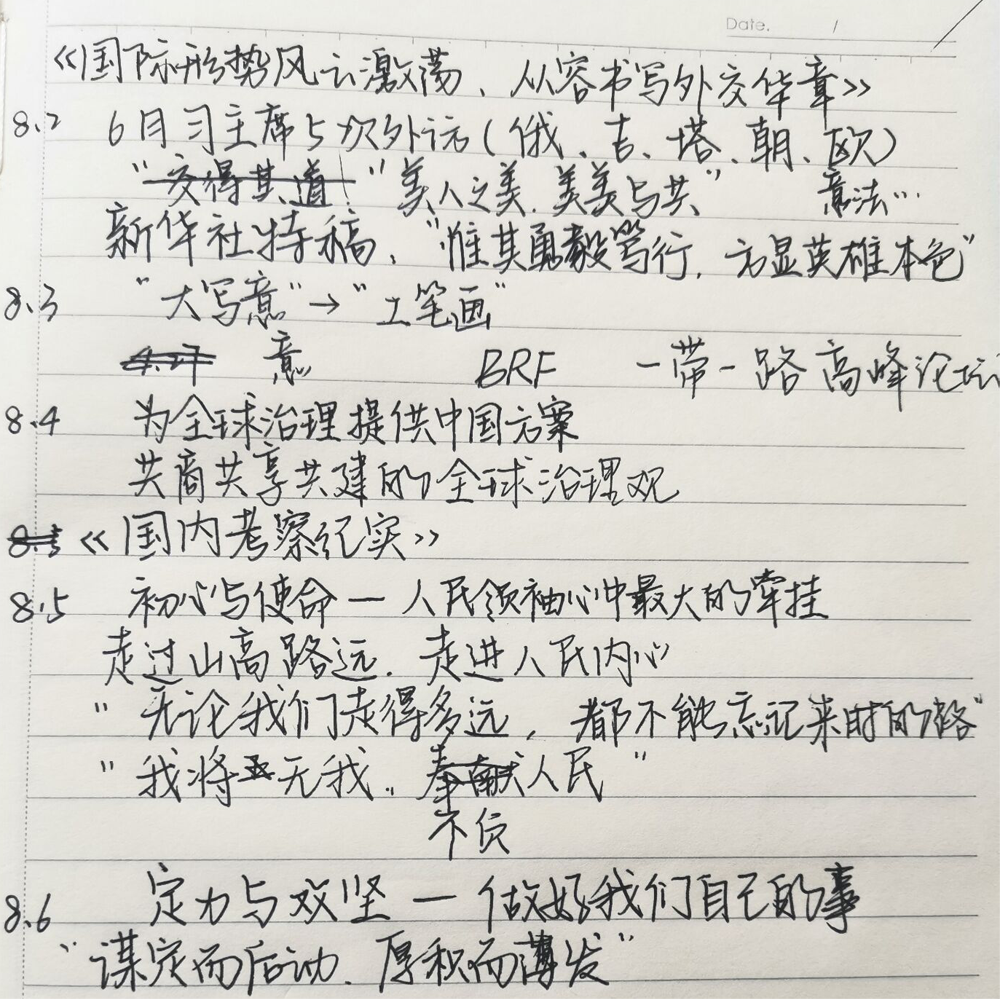 Date. /
《国际形势风云激荡、从容书写外交华章》
8.2 6月习主席5次外访(俄、吉、塔、朝、欧)
"交得其道!"美人之美.美美与共" 意法…
新华社特稿,"惟其勇毅笃行.方显英雄本色"
8.3 "大写意"→"工笔画"
4.27 意 BRF 一带一路高峰论坛
8.4 为全球治理提供中国方案
共商共享共建的全球治理观
8.5 《国内考察纪实》
8.5 初心与使命—人民领袖心中最大的牵挂
走过山高路远.走进人民内心
"无论我们走得多远,都不能忘记来时的路"
"我将无我..奉献人民"
不负
8.6 定力与攻坚—做好我们自己的事
"谋定而后动.厚积而薄发"